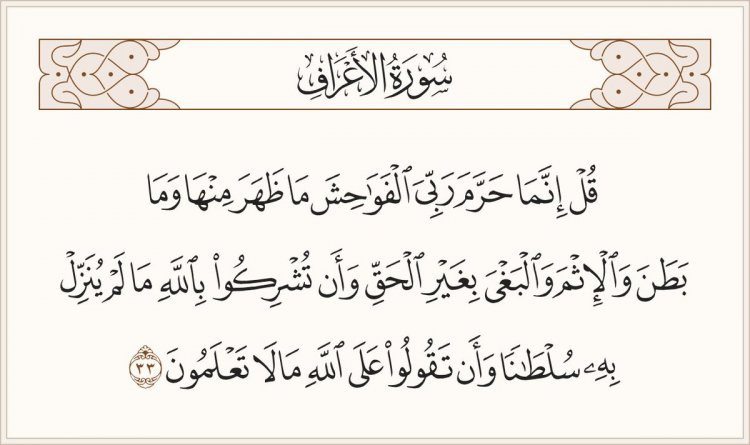 سُورَةُ الأَعْرَافِ
قُلْ إِنَّمَا حَرَّمَ رَبِّىَ ٱلْفَوَٰحِشَ مَا ظَهَرَ مِنْهَا وَمَا
بَطَنَ وَٱلْإِثْمَ وَٱلْبَغْىَ بِغَيْرِ ٱلْحَقِّ وَأَن تُشْرِكُوا۟ بِٱللَّهِ مَا لَمْ يُنَزِّلْ
بِهِۦ سُلْطَٰنًا وَأَن تَقُولُوا۟ عَلَى ٱللَّهِ مَا لَا تَعْلَمُونَ ٣٣